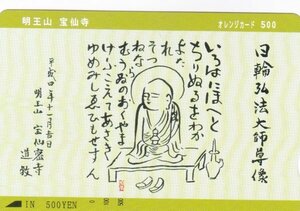 明王山 宝仙寺
オレンジカード 500
日輪弘法大師尊像
いろはにほへと
ちりぬるをわか
よたれ
そつ
ねなら
むうゐのおくやま
けふこえてあさき
ゆめみしゑひもせすん
平成四年十一月吉日
明王山 宝仙密寺
道教
IN 500YEN